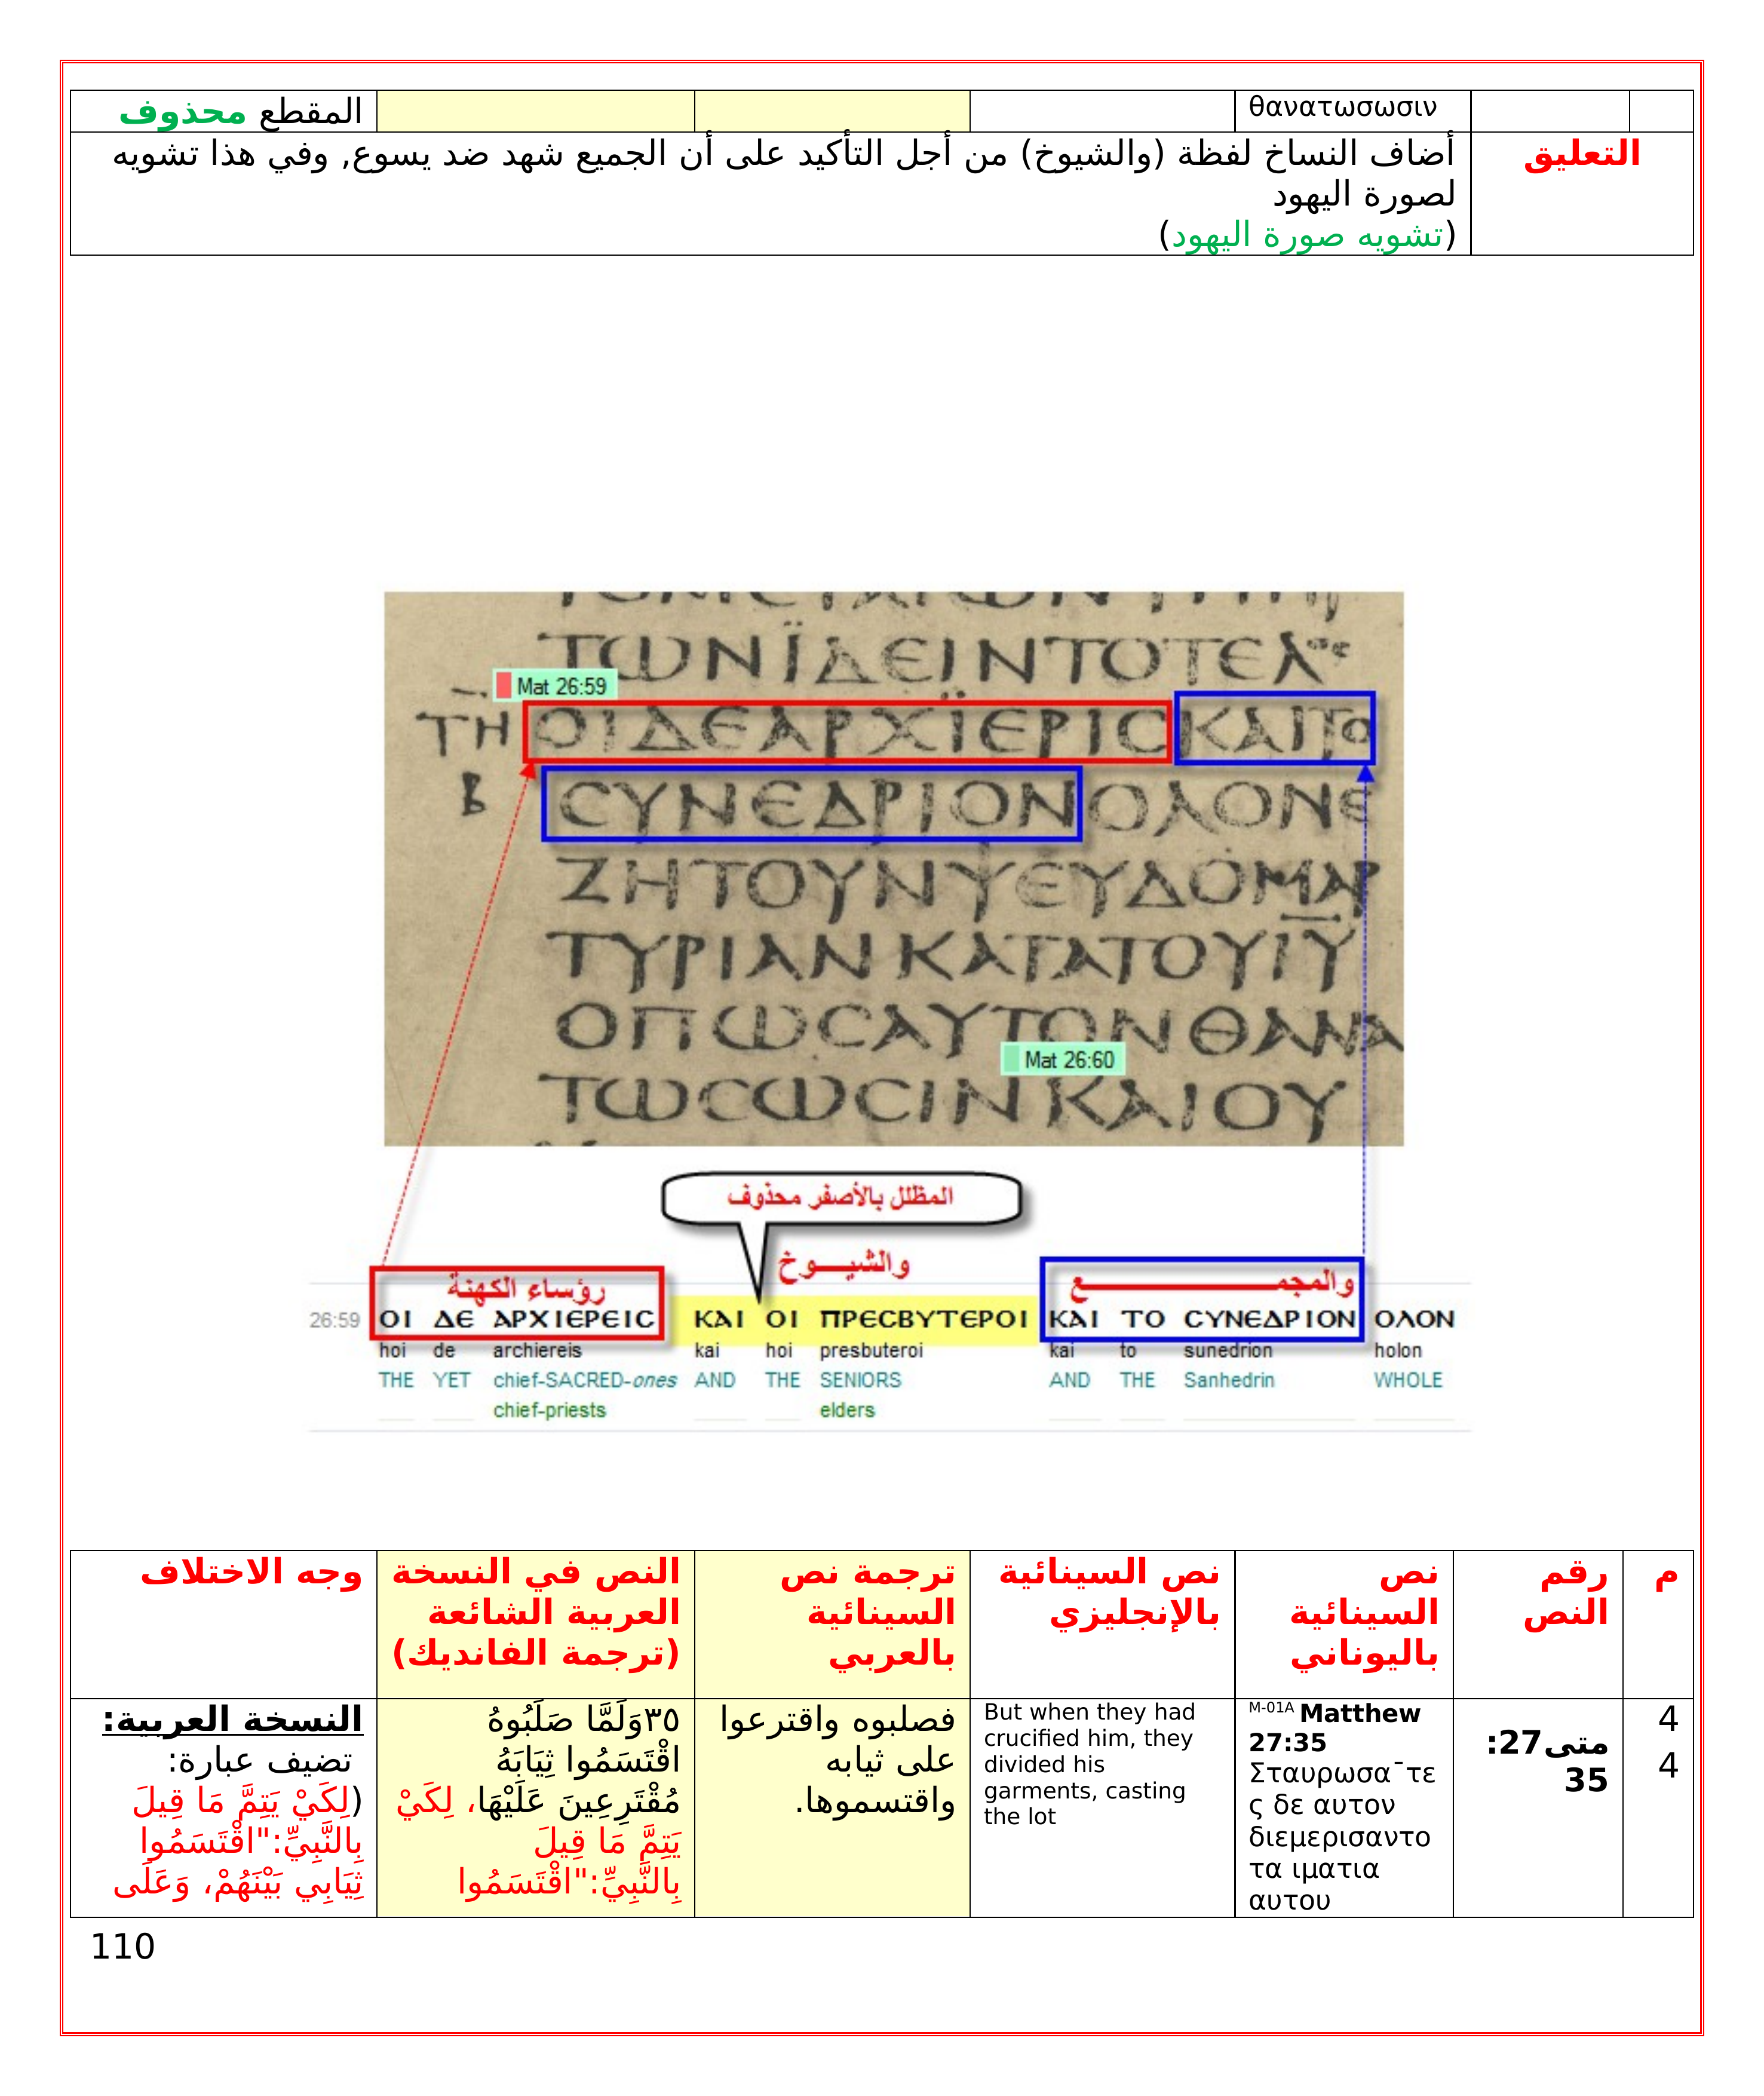 θανατωσωσιν
المقطع محذوف
التعليق
أضاف النساخ لفظة (والشيوخ) من أجل التأكيد على أن الجميع شهد ضد يسوع, وفي هذا تشويه
لصورة اليهود
(تشويه صورة اليهود)
ΤΩΝΪΔΕΙΝΤΟΤΕΛΟϹ
Mat 26:59
ΟΙΔΕΑΡΧΪΕΡΙϹΚΑΙΤΟ
ϹΥΝΕΔΡΙΟΝΟΛΟΝΕ
ΖΗΤΟΥΝΨΕΥΔΟΜΑΡ
ΤΥΡΙΑΝΚΑΤΑΤΟΥΙΥ
ΟΠΩϹΑΥΤΟΝΘΑΝΑ
Mat 26:60
ΤΩϹΩϹΙΝΚΑΙΟΥ
المظلل بالأصفر محذوف
رؤساء الكهنة والشيـــوخ والمجمـــع
26:59 ΟΙ ΔΕ ΑΡΧΙΕΡΕΙϹ ΚΑΙ ΟΙ ΠΡΕϹΒΥΤΕΡΟΙ ΚΑΙ ΤΟ ϹΥΝΕΔΡΙΟΝ ΟΛΟΝ
hoi de archiereis kai hoi presbuteroi kai to sunedrion holon
THE YET chief-SACRED-ones AND THE SENIORS AND THE Sanhedrin WHOLE
chief-priests elders
م
رقم
النص
نص
السينائية
باليوناني
نص السينائية
بالإنجليزي
ترجمة نص
السينائية
بالعربي
النص في النسخة
العربية الشائعة
(ترجمة الفانديك)
وجه الاختلاف
4
4
متى27:
35
M-01A Matthew
27:35
Σταυρωσα¯τε
ς δε αυτον
διεμερισαντο
τα ιματια
αυτου
But when they had
crucified him, they
divided his
garments, casting
the lot
فصلبوه واقترعوا
على ثيابه
واقتسموها.
٣٥وَلَمَّا صَلَبُوهُ
اقْتَسَمُوا ثِيَابَهُ
مُقْتَرِعِينَ عَلَيْهَا، لِكَيْ
يَتِمَّ مَا قِيلَ
بِالنَّبِيِّ:"اقْتَسَمُوا
النسخة العربية:
تضيف عبارة:
(لِكَيْ يَتِمَّ مَا قِيلَ
بِالنَّبِيِّ:"اقْتَسَمُوا
ثِيَابِي بَيْنَهُمْ، وَعَلَى
110